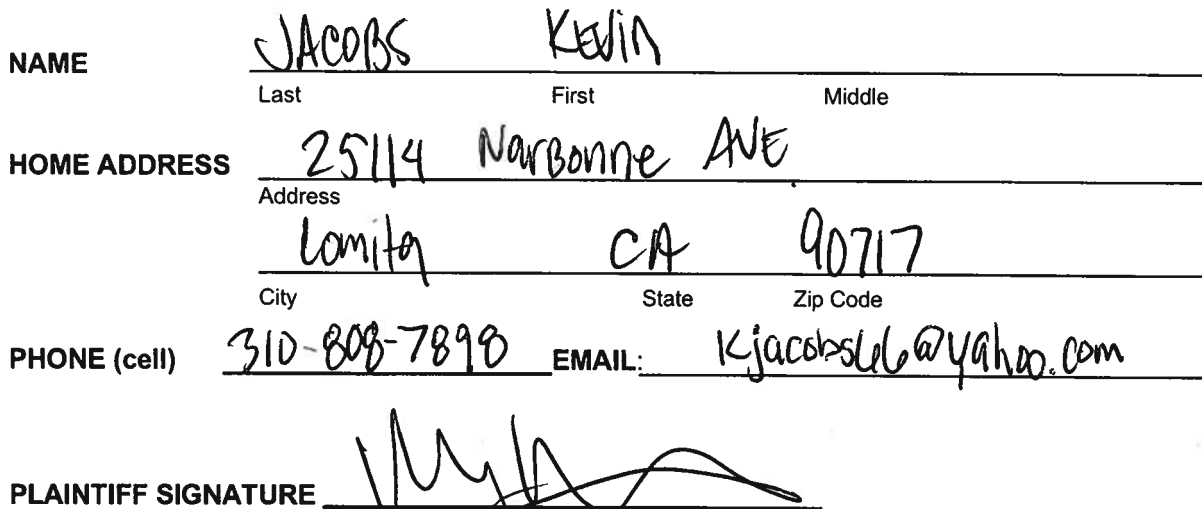 NAME JACOBS KEVIN
Last First Middle
HOME ADDRESS 25114 Narbonne AVE
Address
Lomita CA 90717
City State Zip Code
PHONE (cell) 310-808-7898 EMAIL: Kjacobs66@yahoo.com
PLAINTIFF SIGNATURE